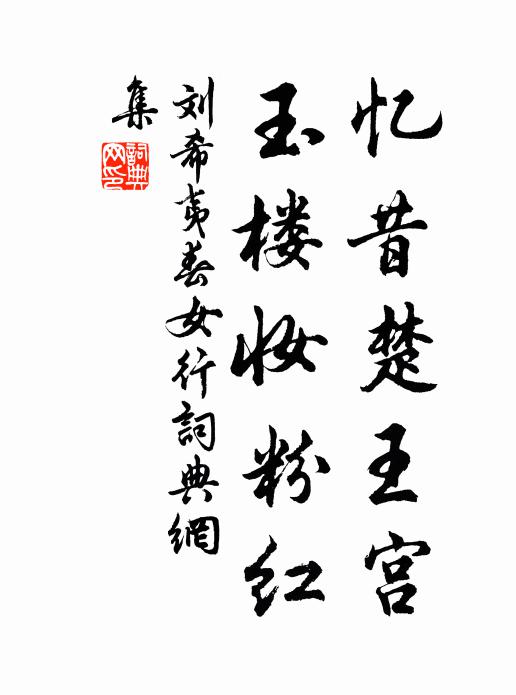 忆昔楚王宫
玉楼妆粉红
刘希夷春女行詞典網
集
詞典
网印